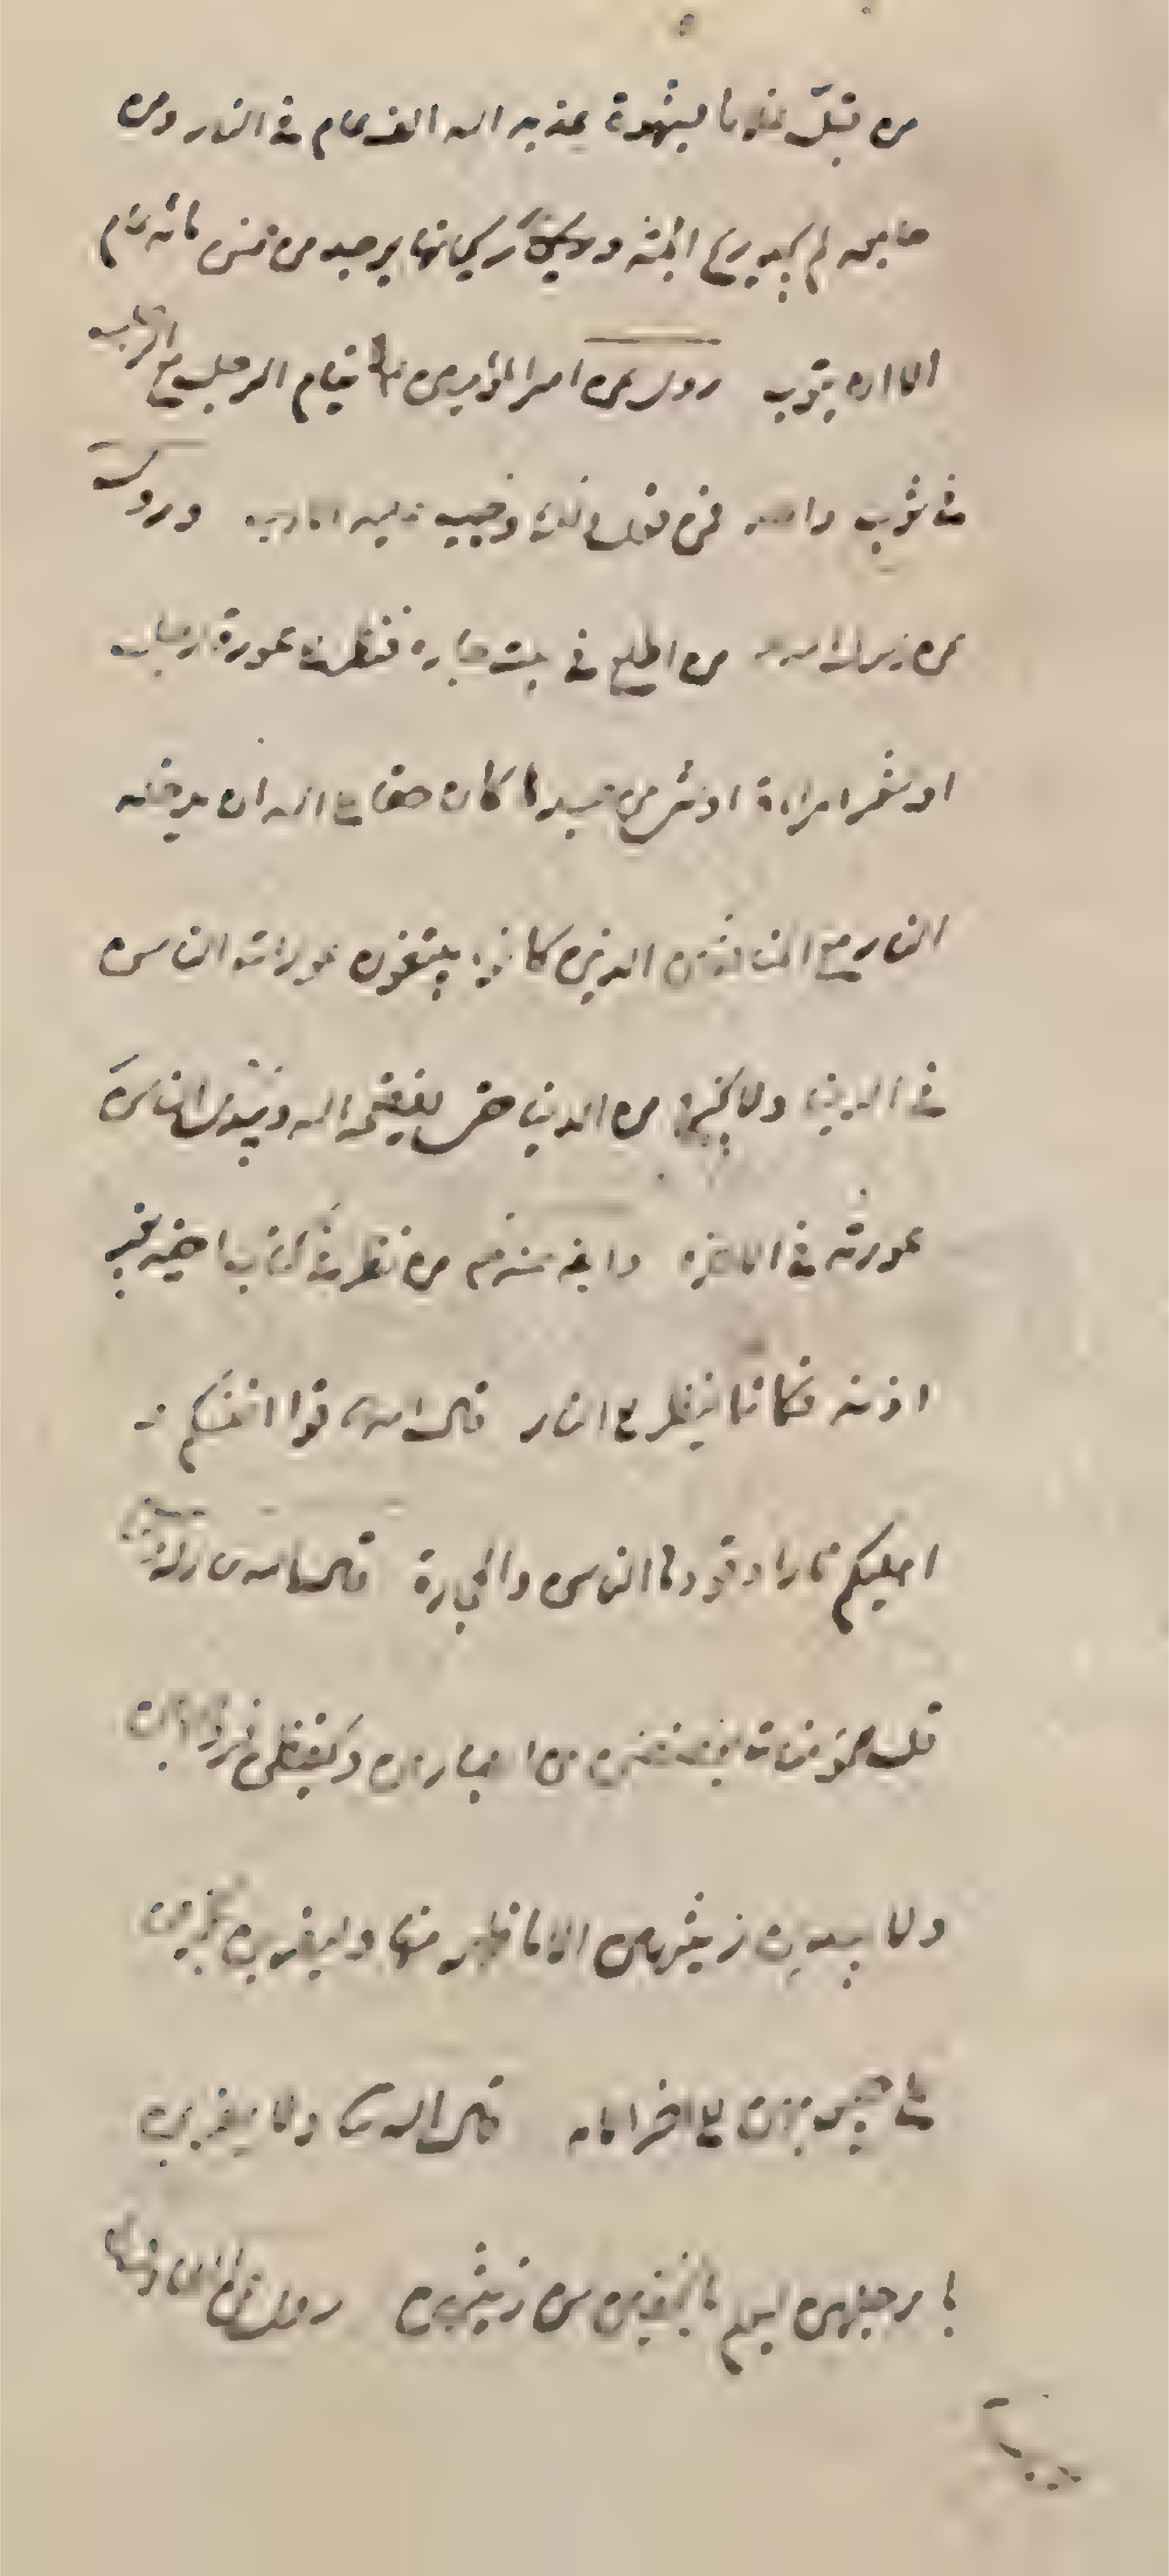 من قبّل غلاما بشهوة عذبه الله الف عام فى النار ومن
جامعه لم يجد ريح الجنة وريحها يوجد من خمس مائة عام
الا ان يتوب روى عن امير المؤمنين قيام الرجل مع الرجل
فى ثوب واحد فمن فعل ذلك وجب عليه الادب وروى
عن رسول الله من اطلع فى بيت جاره فنظر الى عورة رجل
او شعر امراة او شئ من جسدها كان حقا على الله ان يدخله
النار مع المنافقين الذين كانوا يبتغون عورات الناس
فى الدنيا ولا يخرج من الدنيا حتى يفضحه الله ويبدى للناس
عورته فى الاخرة وايضا من نظر فى كتاب اخيه بغير
اذنه فكانما ينظر الى النار قال الله قوا انفسكم و
اهليكم نارا وقودها الناس والحجارة قال الله
قل للمؤمنات يغضضن من ابصارهن ويحفظن فروجهن
ولا يبدين زينتهن الا ما ظهر منها وليضربن بخمرهن
على جيوبهن الى اخر الاية قال الله ولا يضربن
بارجلهن ليعلم ما يخفين من زينتهن